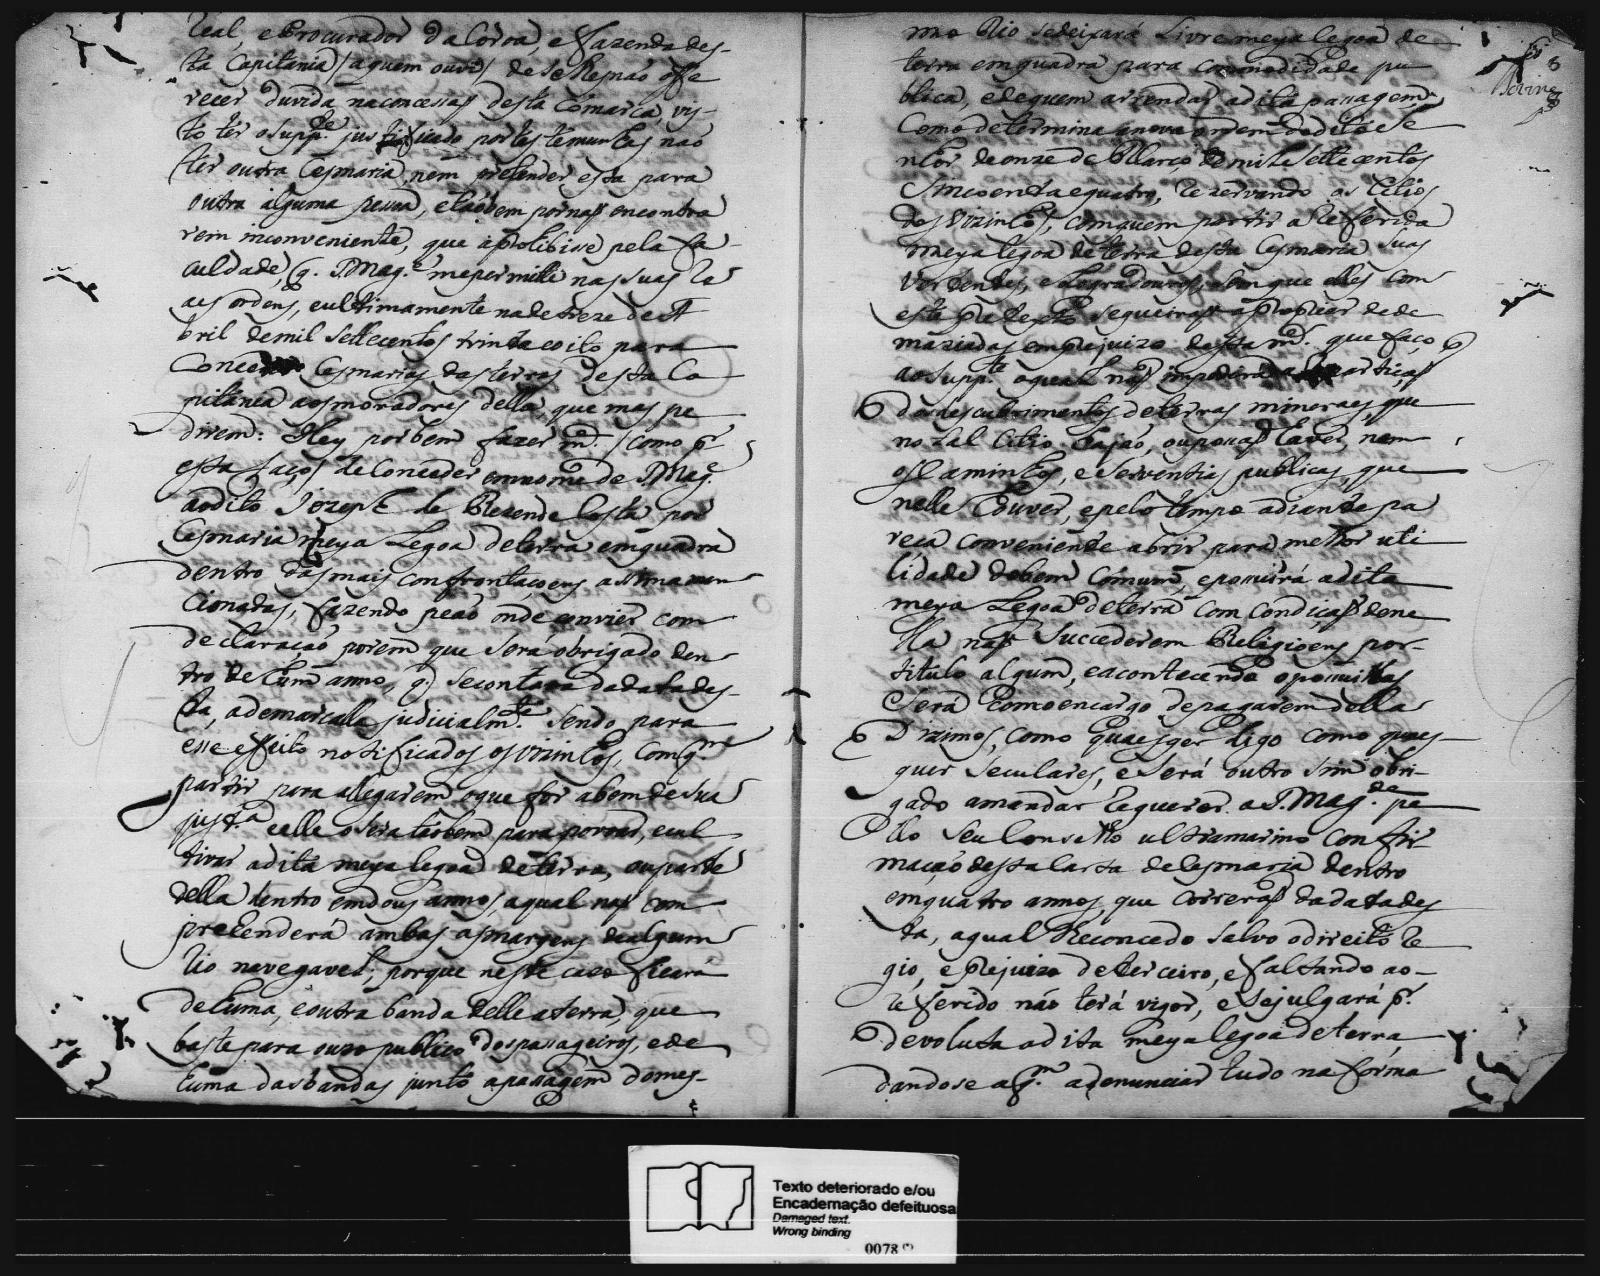 Real, e Procurador da Coroa, e fazenda des-
ta Capitania / aquem ouvi / de se lhe naõ offe
recer duvida na concessaõ desta Comarca, vis-
to ter o Supp.te justificado por testemunhas naõ
ter outra Cesmaria, nem pretender esta para
outra alguma pessoa, e taõbem por naõ encontra
rem inconveniente, que a prohibisse pela fa-
culdade, q. S. Mag.e me permite nas suas Re
aes ordens, e ultimamente na de treze de A
bril de mil Settecentos trinta e oito para
Conceder Cesmarias das terras desta Ca
pitania aos moradores della, que mas pe
direm: Hey por bem fazer m.ce / como p.r
esta faço / de Conceder em nome de S. Mag.e
ao dito Jozeph de Rezende Costa por
Cesmaria meya Legoa de terra em quadra
dentro das mais confrontaçoens asima men
cionadas, fazendo peaõ onde convier com
declaraçaõ porem que será obrigado den
tro de hum anno, q. se contará da data des-
ta, a demarcalla judicialm.te sendo para
esse effeito notificados os vizinhos, com q.m
partir para allegarem o que for a bem de sua
just.a e elle o será taõbem para povoar, e cul
tivar a dita meya legoa de terra, ou parte
della dentro em dous annos, a qual naõ com
prehenderá ambas as margens de algum
Rio navegavel, porque neste cazo ficará
de huma, e outra banda delle a terra, que
baste para o uzo publico dos passageiros, e de
huma das bandas junto a passagem do mes-
mo Rio se deixará livre meya legoa de
terra em quadra para commodidade pu
blica, e de quem arrendar a dita passagem
Como determina a nova ordem do dito Se
nhor de onze de Março de mil e Settecentos
Sincoenta e quatro, rezervando os Citios
dos Vizinhos, com quem partir a referida
meya legoa de terra desta Cesmaria, suas
Vertentes, e Logradouros, sem que elles com
este pretexto se queiraõ apropriar de de
maziadas em prejuizo desta m.ce que faço
ao Supp.te o qual naõ impedirá a repartiçaõ
dos descubrimentos de terras mineraes, que
no tal Citio hajaõ, ou possaõ haver, nem
os Caminhos, e Serventias publicas, que
nelle houver, e pelo tempo adiante pa
reca conveniente abrir para melhor uti
lidade do bem Comum, e possuirá a dita
meya Legoa de terra com condiçaõ de ne
lla naõ Succederem Religioens por-
titulo algum, e acontecendo possuillas
Será com o encargo de pagarem della
Dizimos, como quaesqer digo como quaes-
quer Seculares, e Será outro sim obri-
gado a mandar requerer a S. Mag.de pe
llo seu Conselho ultramarino confir
maçaõ desta Carta de Cesmaria dentro
em quatro annos, que correraõ da data des
ta, a qual lhe concedo salvo o direito Re
gio, e prejuizo de terceiro, e faltando ao-
referido não terá vigor, e se julgará p.r
devoluta a dita meya legoa de terra
dandose a q.m a denunciar tudo na fórma
Texto deteriorado e/ou
Encadernação defeituosa
Damaged text.
Wrong binding
0078